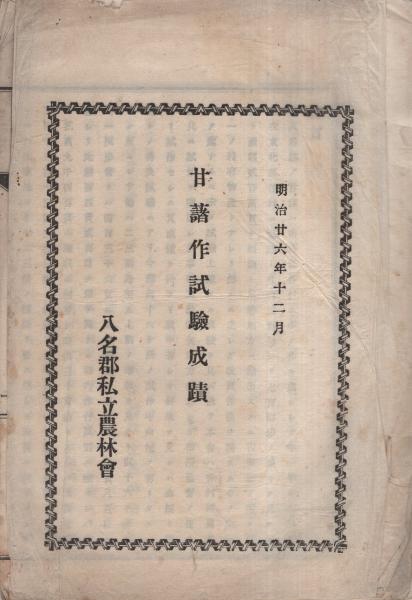 明治廿六年十二月
甘藷作試驗成蹟
八名郡私立農林會